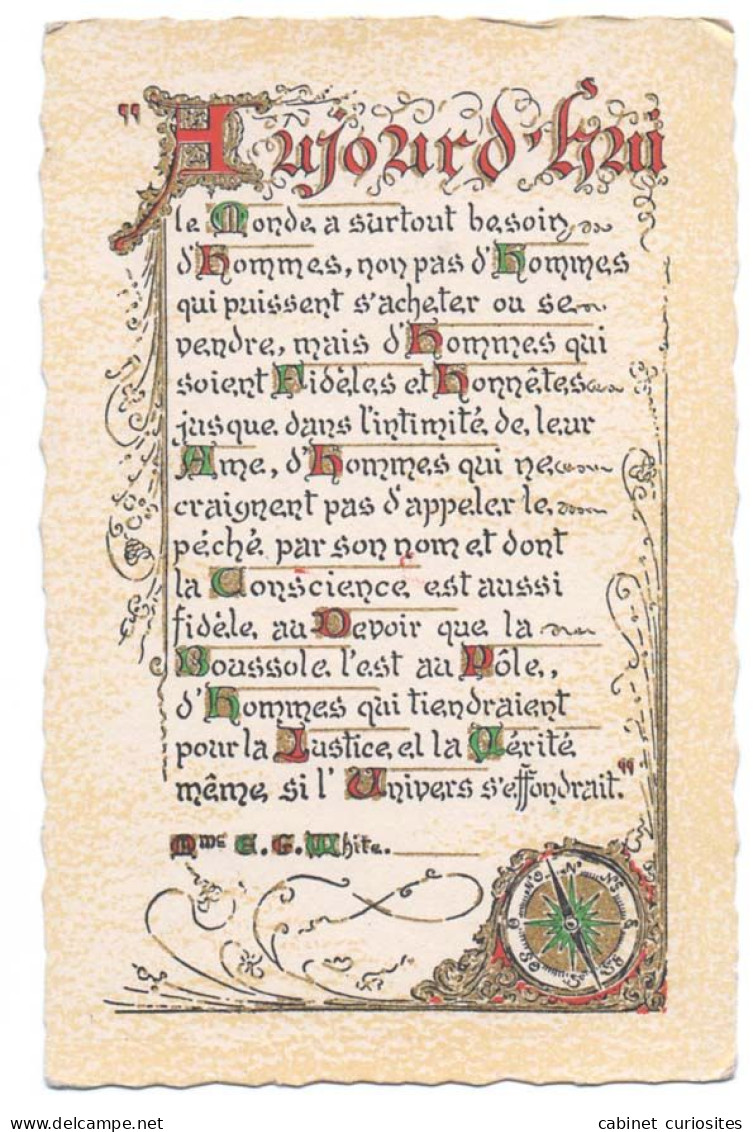 "Aujourd'hui
le Monde a surtout besoin
d'Hommes, non pas d'Hommes
qui puissent s'acheter ou se
vendre, mais d'Hommes qui
soient Fidèles et Honnêtes
jusque dans l'intimité de leur
Ame, d'Hommes qui ne
craignent pas d'appeler le
péché par son nom et dont
la Conscience est aussi
fidèle au Devoir que la
Boussole l'est au Pôle,
d'Hommes qui tiendraient
pour la Justice et la Vérité
même si l'Univers s'effondrait."
Mme E. G. White.
cabinet curiosites